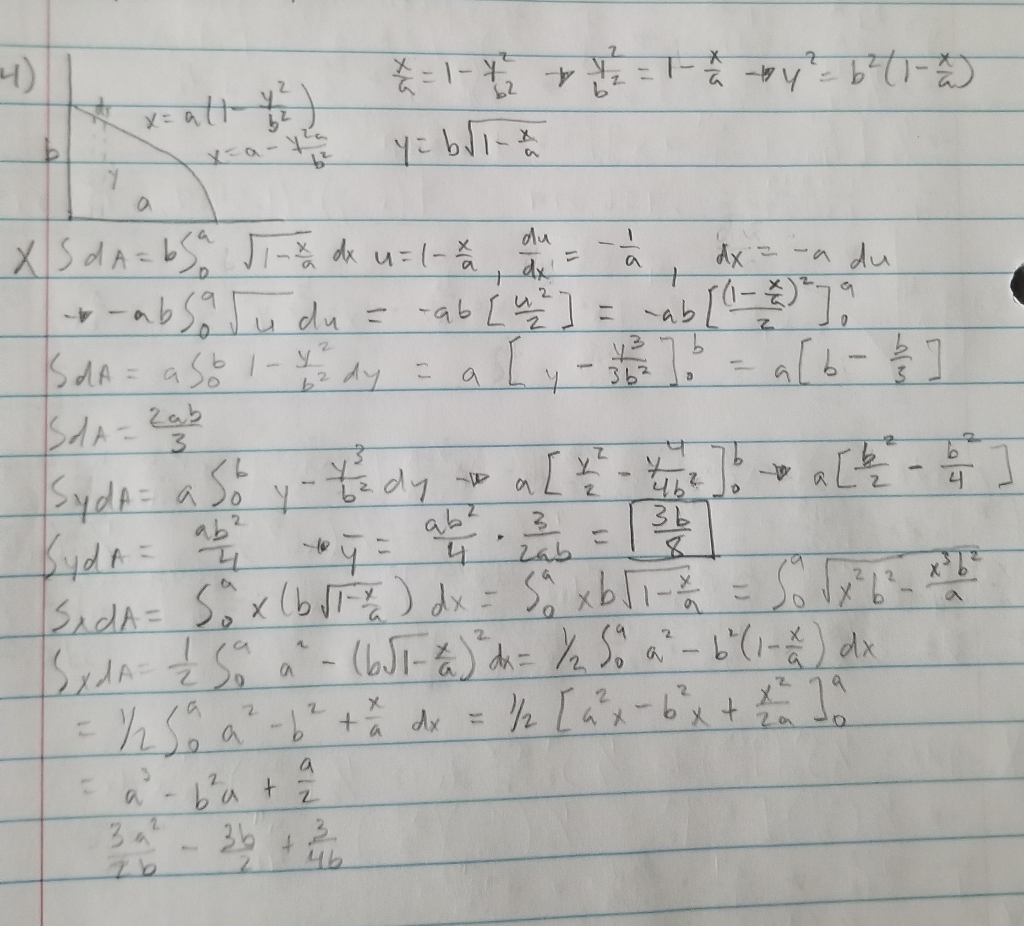 4) x/a = 1 - y²/b² → y²/b² = 1 - x/a → y² = b²(1 - x/a)
x = a(1 - y²/b²)
x = a - y²a/b² y = b√(1 - x/a)
b
y
a
X ∫dA = b∫₀ᵃ √(1 - x/a) dx u = 1 - x/a , du/dx = -1/a , dx = -a du
→ -ab∫₀ᵃ √u du = -ab [u²/2] = -ab [(1 - x/a)²/2]₀ᵃ
∫dA = a∫₀ᵇ 1 - y²/b² dy = a [y - y³/3b²]₀ᵇ = a[b - b/3]
∫dA = 2ab/3
∫ydA = a∫₀ᵇ y - y³/b² dy → a[y²/2 - y⁴/4b²]₀ᵇ → a[b²/2 - b²/4]
∫ydA = ab²/4 → ȳ = ab²/4 · 3/2ab = 3b/8
∫xdA = ∫₀ᵃ x(b√(1 - x/a)) dx = ∫₀ᵃ xb√(1 - x/a) = ∫₀ᵃ √(x²b² - x³b²/a)
∫xdA = 1/2 ∫₀ᵃ a² - (b√(1 - x/a))² dx = 1/2 ∫₀ᵃ a² - b²(1 - x/a) dx
= 1/2 ∫₀ᵃ a² - b² + x/a dx = 1/2 [a²x - b²x + x²/2a]₀ᵃ
= a³ - b²a + a/2
3a²/2b - 3b/2 + 3/4b